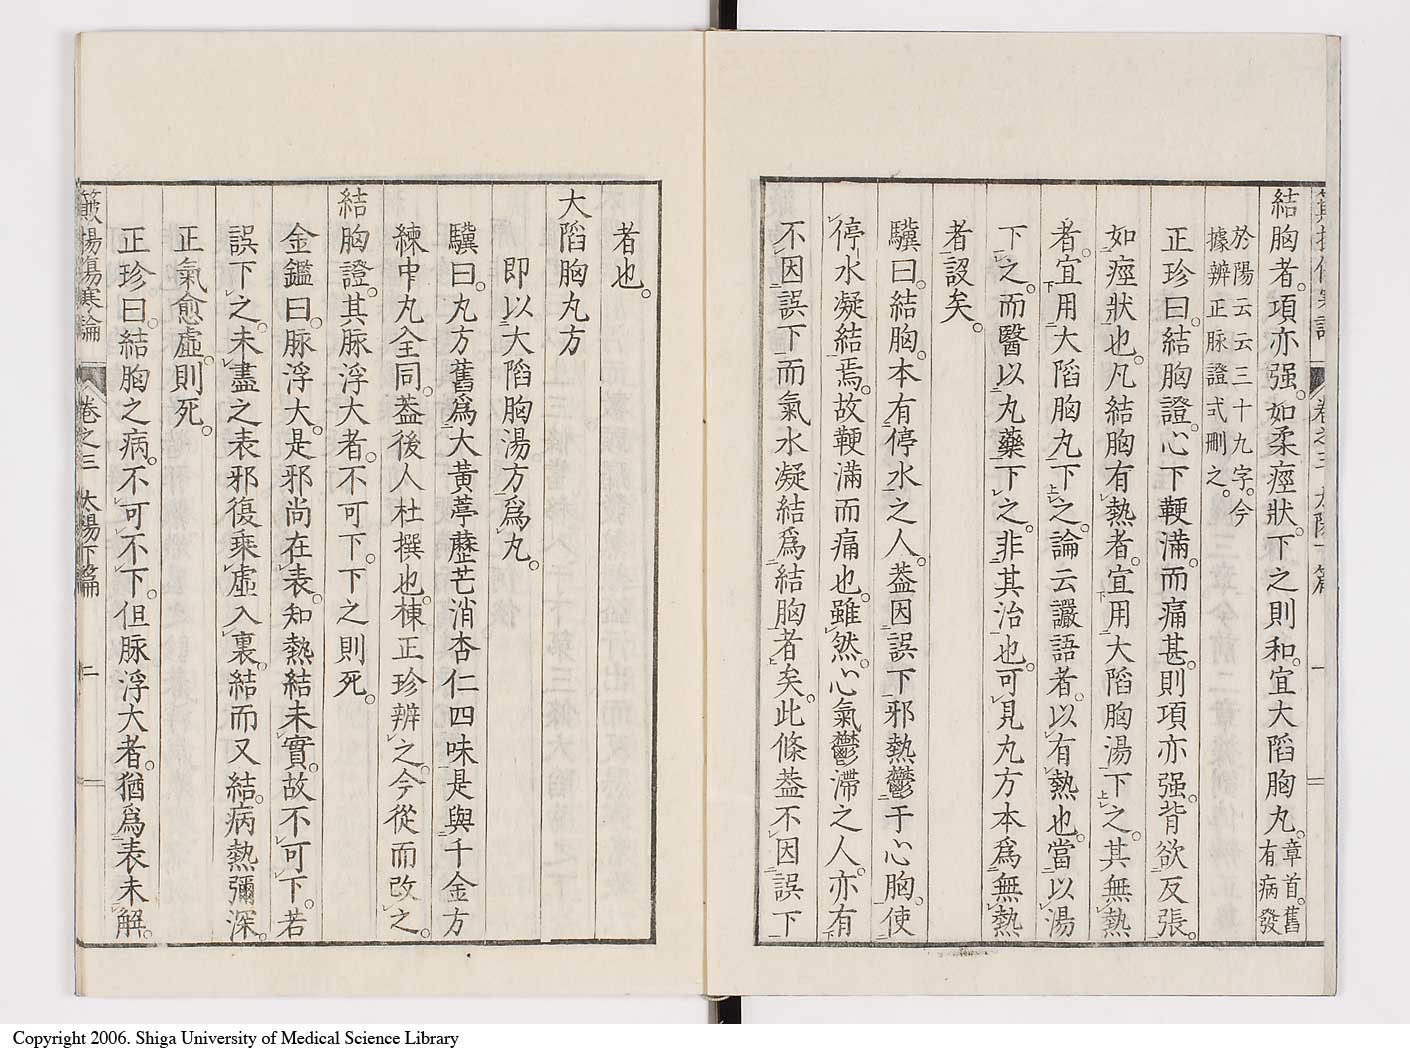 結胸者。項亦强。如柔痙狀。下之則和。宜大陷胸丸。章首。舊有病發
於陽云云三十九字。今
據辨正脉證弍刪之。
正珍曰。結胸證。心下鞕滿。而痛甚。則項亦强。背欲反張。
如痙狀也。凡結胸有熱者。宜用大陷胸湯下之。其無熱
者。宜用大陷胸丸下之。論云讝語者。以有熱也。當以湯
下之。而醫以丸藥下之。非其治也。可見丸方本爲無熱
者設矣。
驥曰。結胸。本有停水之人。葢因誤下邪熱鬱于心胸。使
停水凝結焉。故鞕滿而痛也。雖然。心氣鬱滯之人。亦有
不因誤下而氣水凝結爲結胸者矣。此條葢不因誤下
者也。
大陷胸丸方
即以大陷胸湯方爲丸。
驥曰。丸方舊爲大黃葶藶芒消杏仁四味。是與千金方
練中丸全同。葢後人杜撰也。棟正珍辨之。今從而改之。
結胸證。其脉浮大者。不可下。下之則死。
金鑑曰。脉浮大。是邪尚在表。知熱結未實。故不可下。若
誤下之。未盡之表邪復乘虛入裏。結而又結。病熱彌深。
正氣愈虛。則死。
正珍曰。結胸之病。不可不下。但脉浮大者。猶爲表未解。
卷之三 太陽下篇 二
Copyright 2006. Shiga University of Medical Science Library